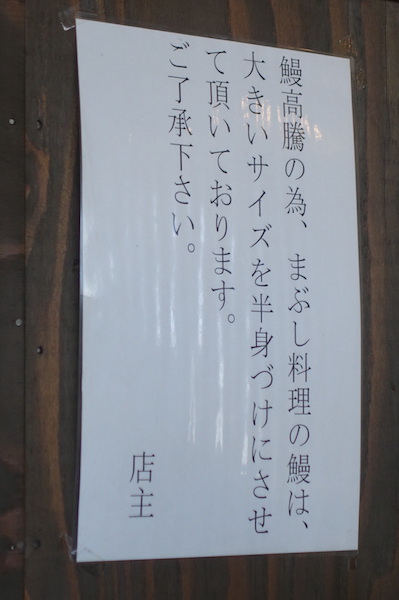 鰻高騰の為、まぶし料理の鰻は、
大きいサイズを半身づけにさせ
て頂いております。
ご了承下さい。
店主